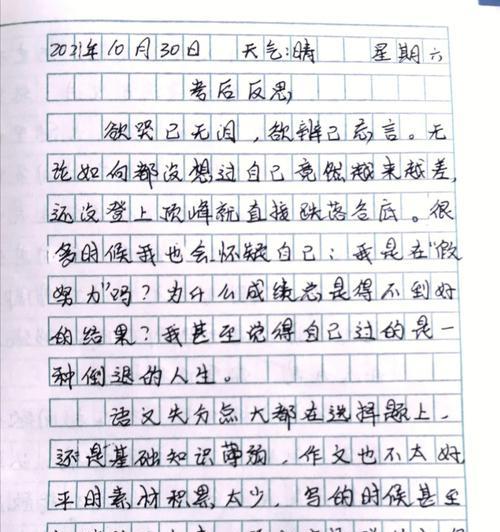 2021年10月30日 天气:晴 星期六
考后反思
欲哭已无泪，欲辨已忘言。无
论如何都没想过自己竟然越来越差，
还没登上顶峰就直接跌落谷底。很
多时候我也会怀疑自己：我是在“假
努力”吗？为什么成绩总是得不到好
的结果？我甚至觉得自己过的是一
种倒退的人生。
语文失分点大都在选择题上，
还是基础知识薄弱，作文也不太好
平时素材积累太少，写的时候甚至